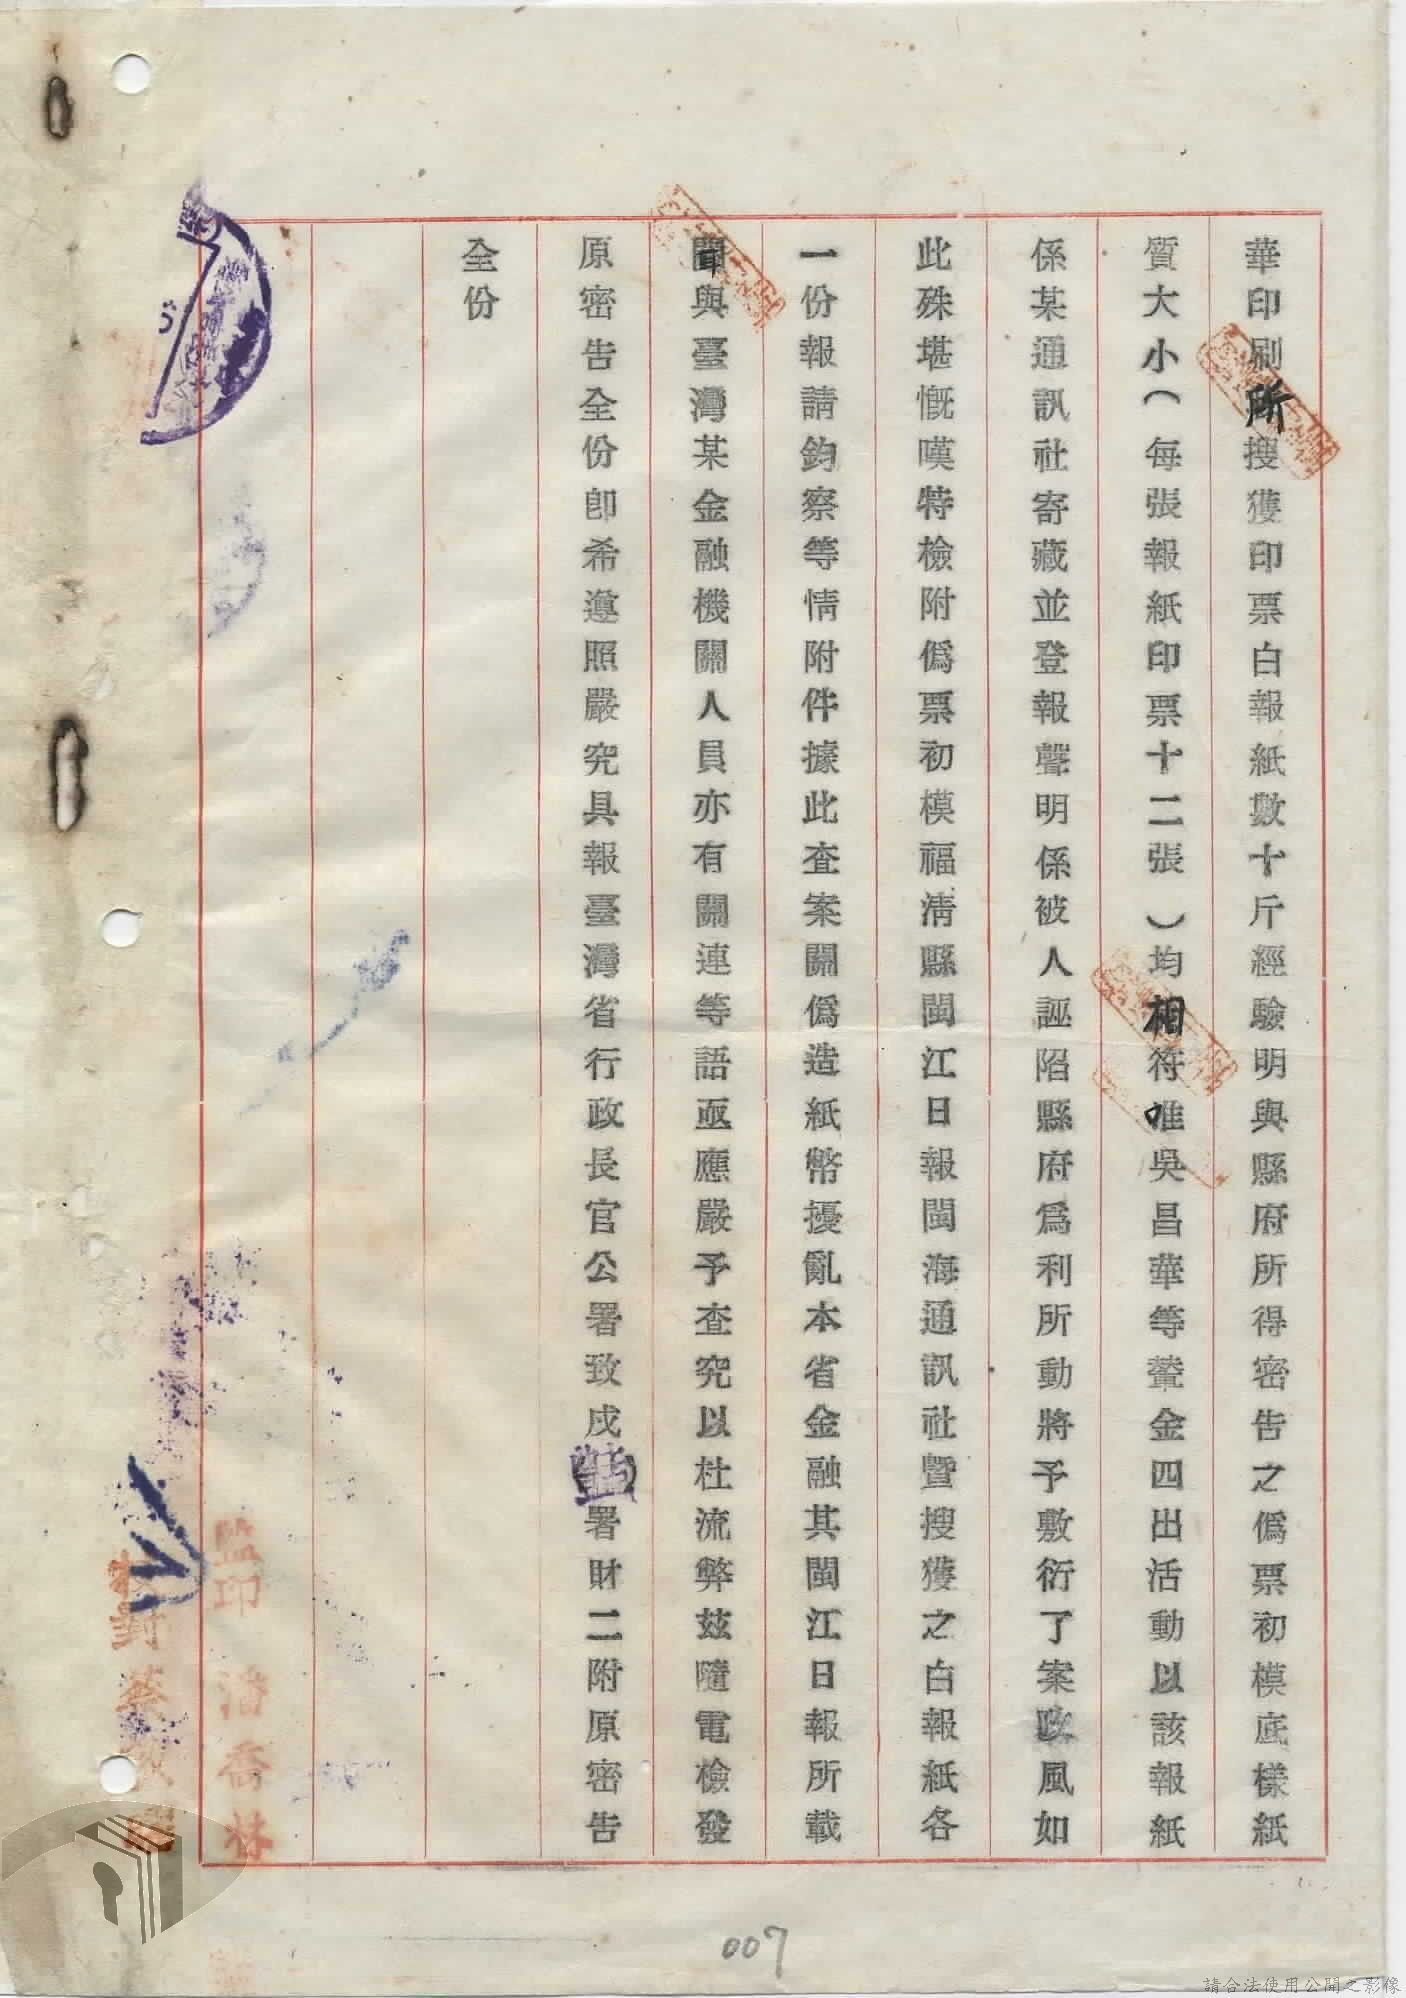 華印刷所搜獲印票白報紙數十斤經驗明與縣府所得密告之僞票初模底樣紙
質大小（每張報紙印票十二張）均相符惟吳昌華等輦金四出活動以該報紙
係某通訊社寄藏並登報聲明係被人誣陷縣府爲利所動將予敷衍了案政風如
此殊堪慨嘆特檢附僞票初模福淸縣閩江日報閩海通訊社暨搜獲之白報紙各
一份報請鈞察等情附件據此查案關僞造紙幣擾亂本省金融其閩江日報所載
聞與臺灣某金融機關人員亦有關連等語亟應嚴予查究以杜流弊茲隨電檢發
原密告全份卽希遵照嚴究具報臺灣省行政長官公署致戌署財二附原密告
全份
監印 潘喬林
校對 蔡
007
請合法使用公開之影像